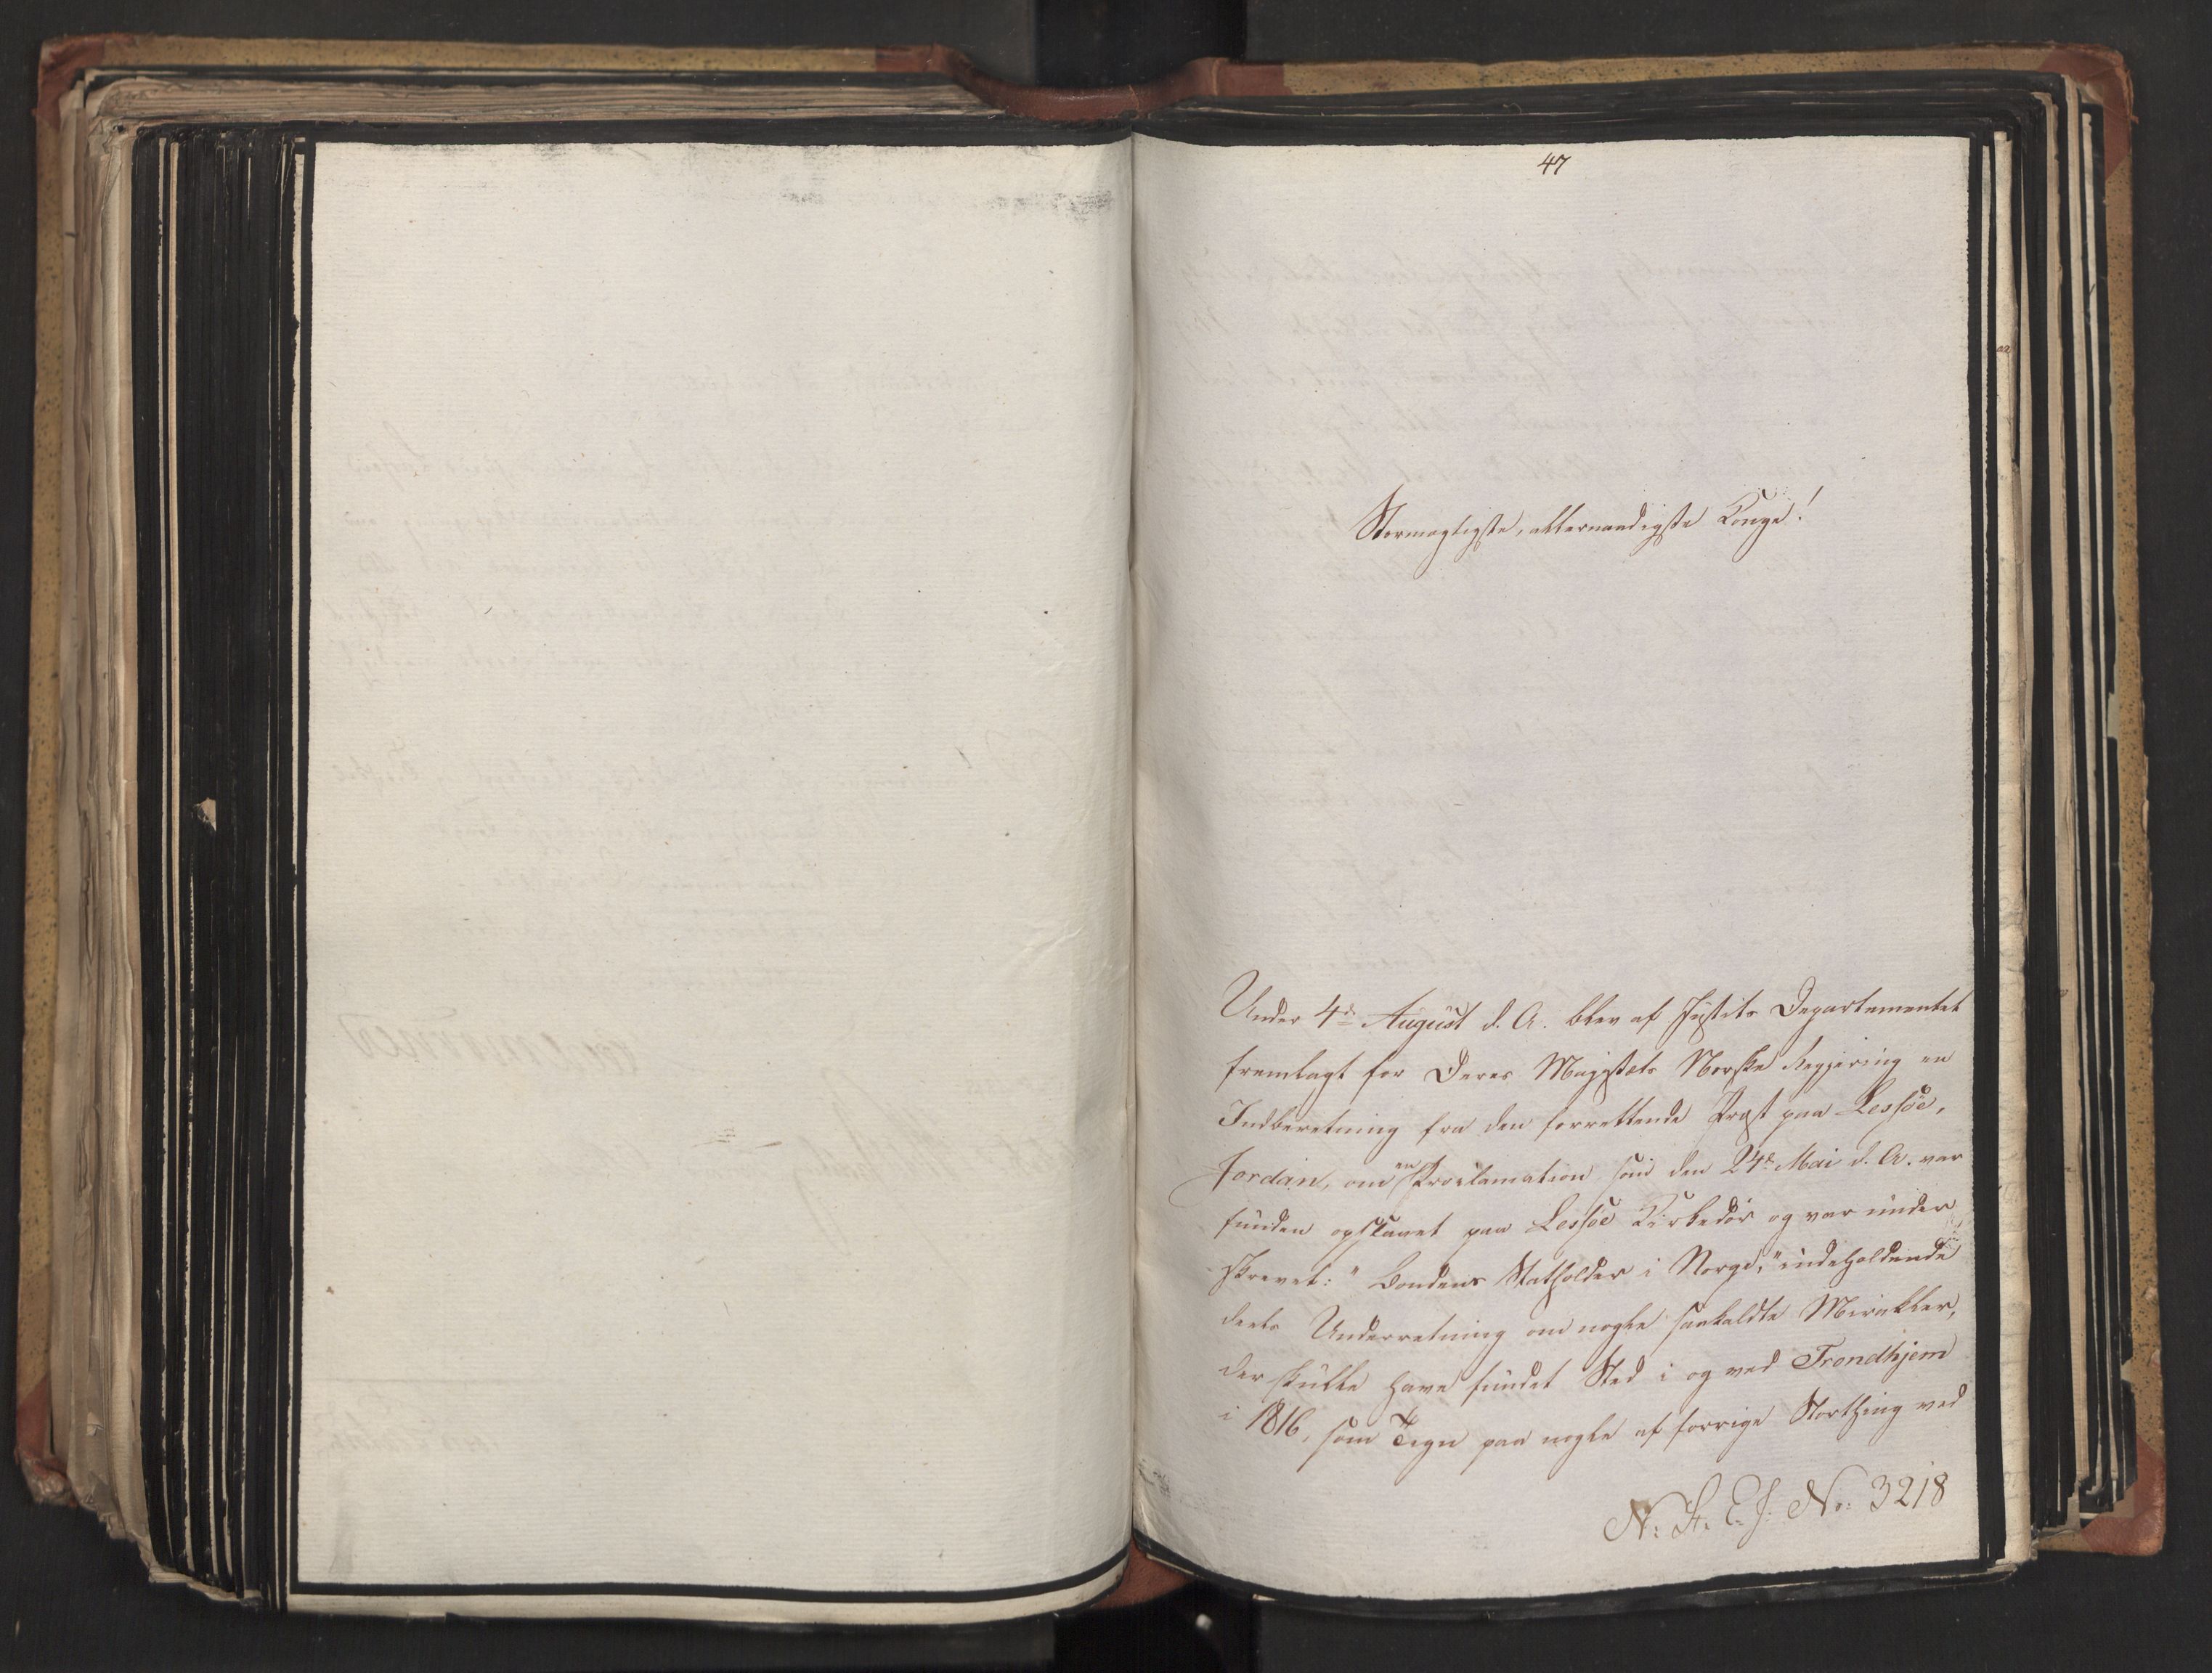 47
Stormægtigste, allernaadigste Konge!
Under 4de August d. A. blev af Justits Departementet
fremlagt for Deres Majestæts Norske Regjering en
Indberetning fra den forrettende Præst paa Lessøe,
Jordan, om en Proclamation som den 24de Mai d. A. var
funden opslaaet paa Lessøe Kirkedør og var under
skrevet: "Bondens Statholder i Norge," indeholdende
deels Underretning om nogle saakaldte Mirakler,
der skulle have fundet Sted i og ved Trondhjem
i 1816, som Tegn paa nogle af forrige Storthing ved
N: St. E. J. No: 3218